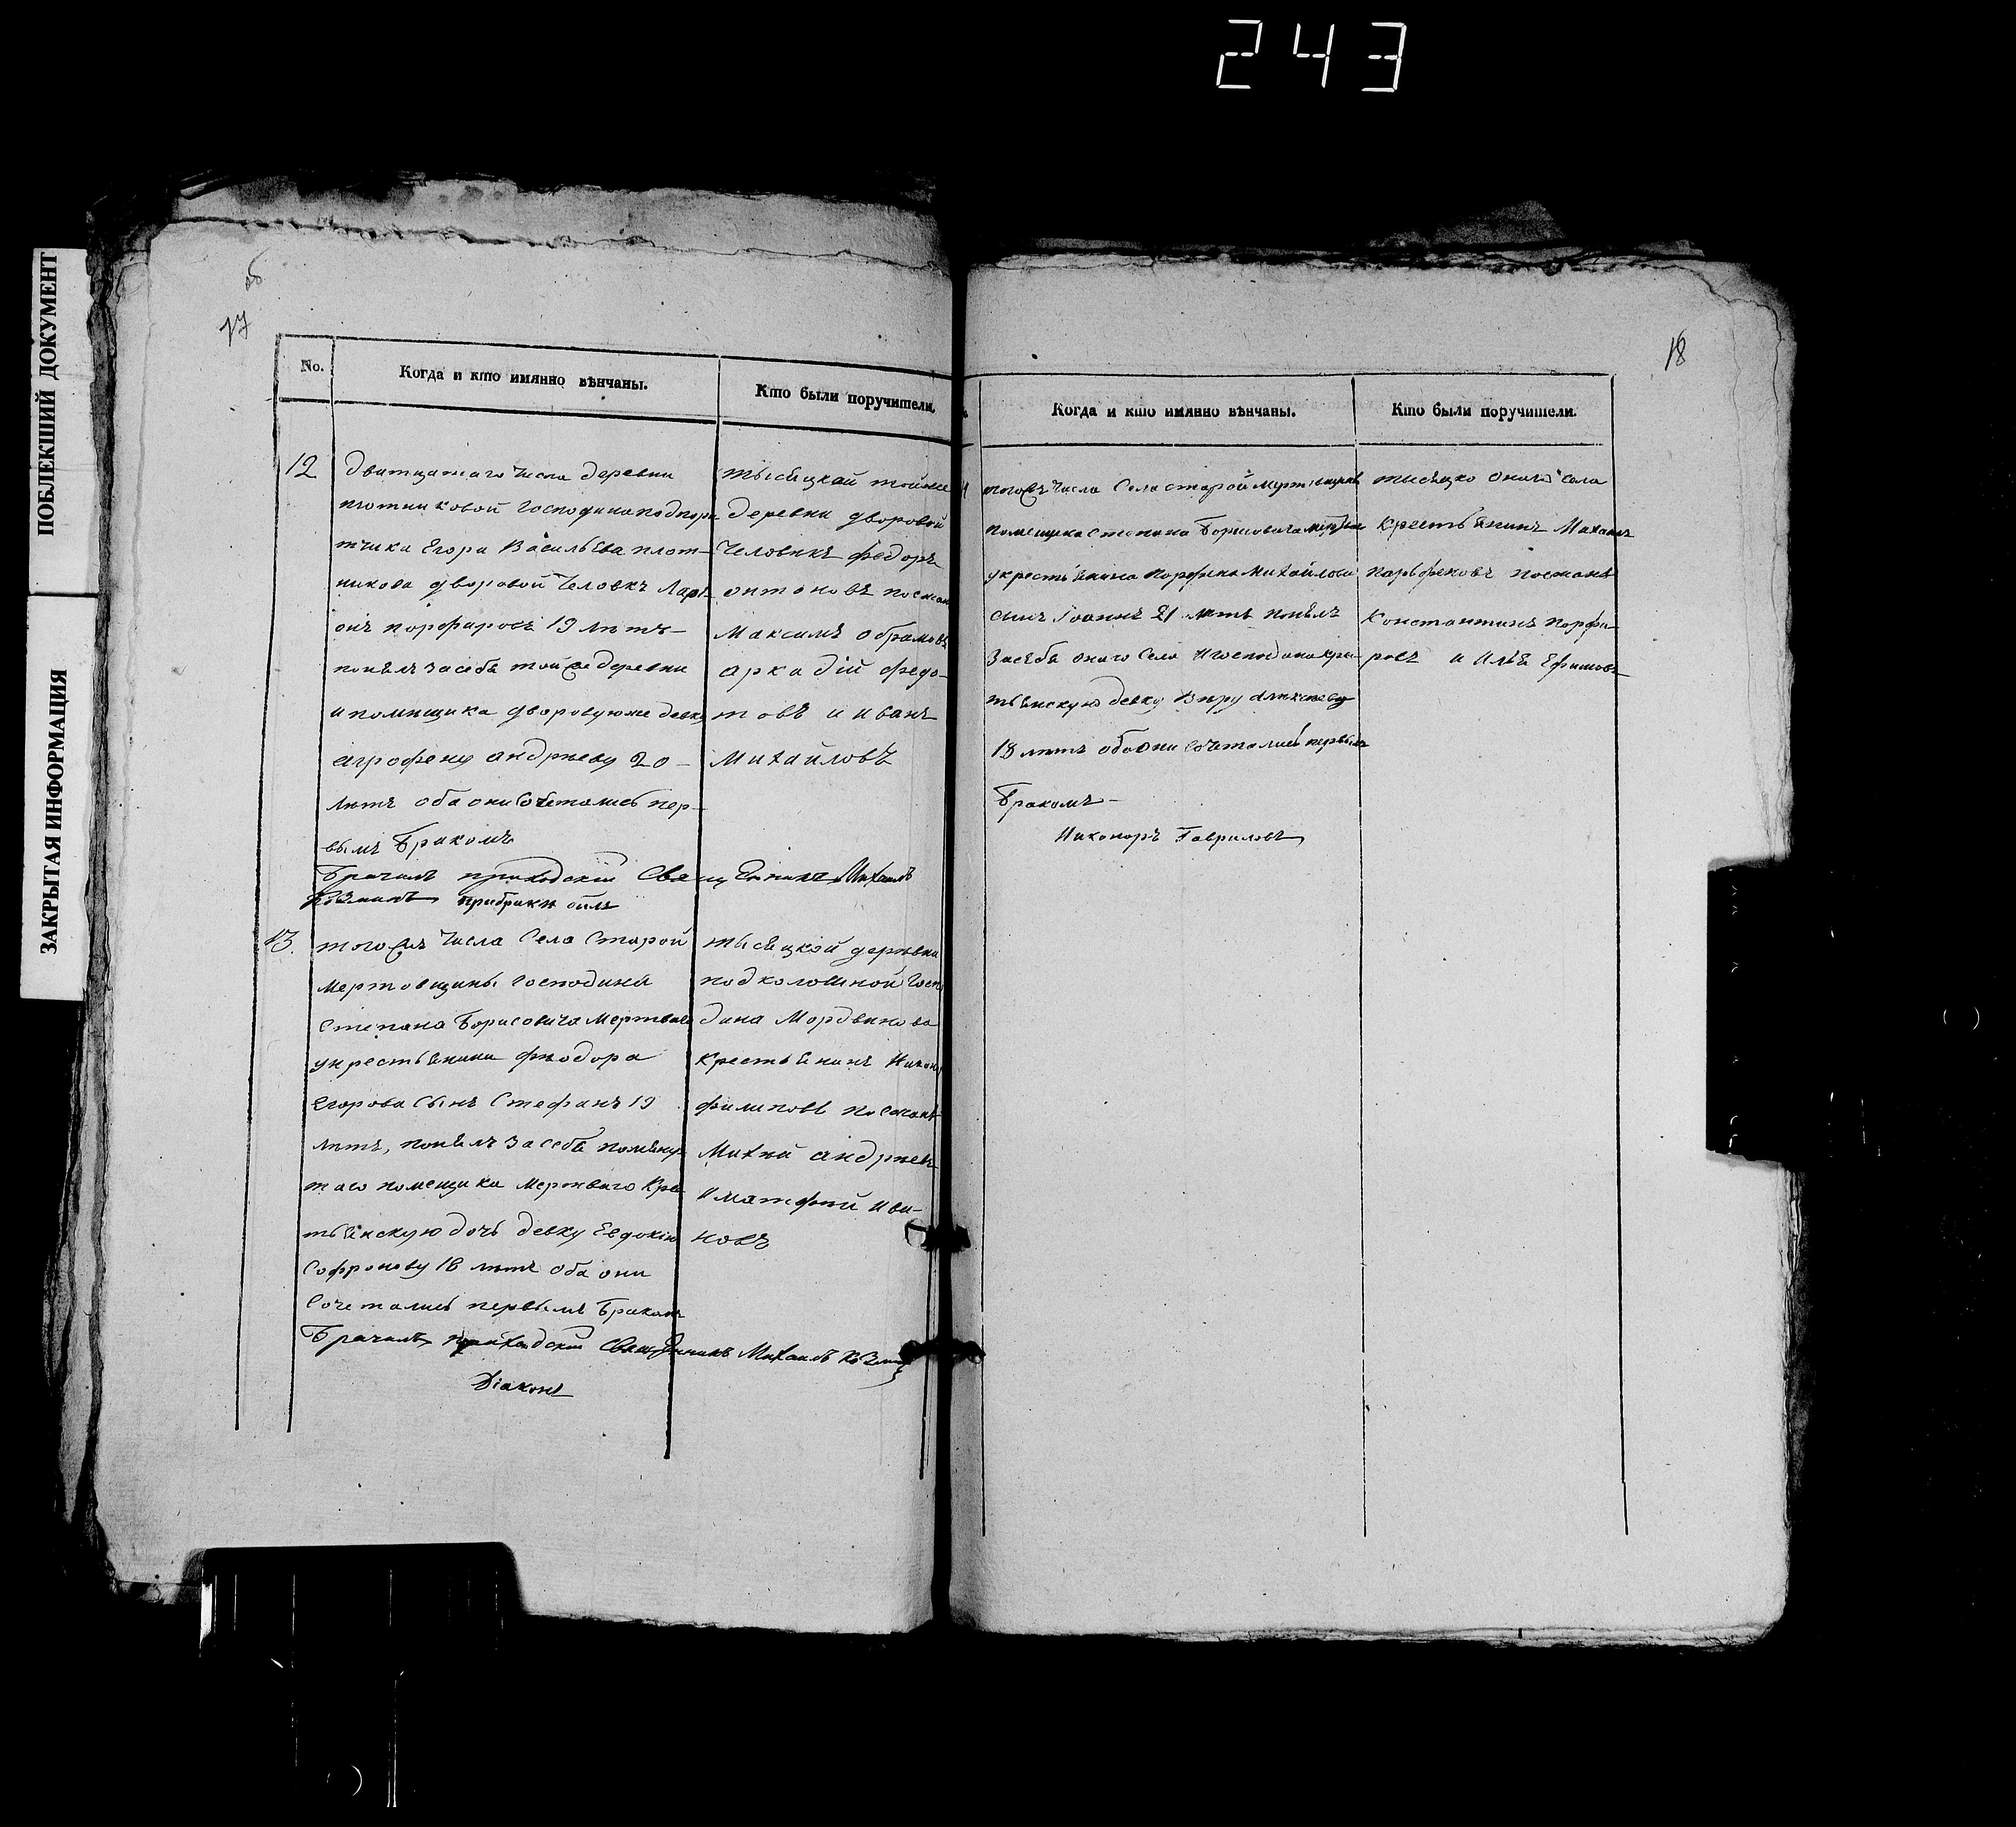 243
ПОБЛЕКШИЙ ДОКУМЕНТ
ЗАКРЫТАЯ ИНФОРМАЦИЯ
17
No.
Когда и кто имянно вѣнчаны.
Кто были поручители.
12
Дватцатаго числа деревни
плотниковой Господина подпору
тчика Егора Васильева плот-
никова дворовой человкъ Лари
онъ порфировъ 19 лѣтъ
понялъ засебя тойже деревни
ипомищика дворовуюже девку
агрофену андрѣеву 20
лѣтъ оба они Сочеталис пер-
вымъ бракомъ
Брачилъ приходскій Священникъ Михаилъ
Козминъ прибраки былъ
тысяцкай тойже
деревни дворовой
человекъ федоръ
онтоновъ поежан
Максимъ обрамовъ
аркадій федо-
товъ и иванъ
Михайловъ
13.
тогожъ числа Села Старой
Мертовщины господина
Степана Борисовича Мертваго
укрестьянина фѣодора
егорова Сынъ Стефанъ 19
лѣтъ, понялъ засебя помяну
таго помещика Мертваго Кре
тьянскую дочь девку Евдокію
Софронову 18 лѣтъ оба они
Сочеталис первымъ бракомъ
Брачилъ приходскій Священникъ Михаилъ Козминъ
Діаконъ
тысяцкой дерѣвни
подколошной Госп
дина Мордвинова
крестьянинъ Никон
филиповъ поежанѣ
Михѣй андрѣевъ
и матфѣй ива-
новъ
18
Когда и кто имянно вѣнчаны.
Кто были поручители.
тогожъ числа Села старой мертовщины
помещика степана Борисовича мертваго
укрестьянина порфена Михайлова
сынъ Іоаннъ 21 лѣтъ понялъ
Засебя онаго Села Игосподина кре-
тьянскую девку Вѣру алѣксееву
18 лѣтъ оба они Сочеталис первымъ
Бракомъ
Никоноръ Гавриловъ
тисяцко онаго Села
крестьянинъ Михаилъ
парьфеновъ поежанѣ
Константинъ порфи-
ровъ и Илья Ефимовъ